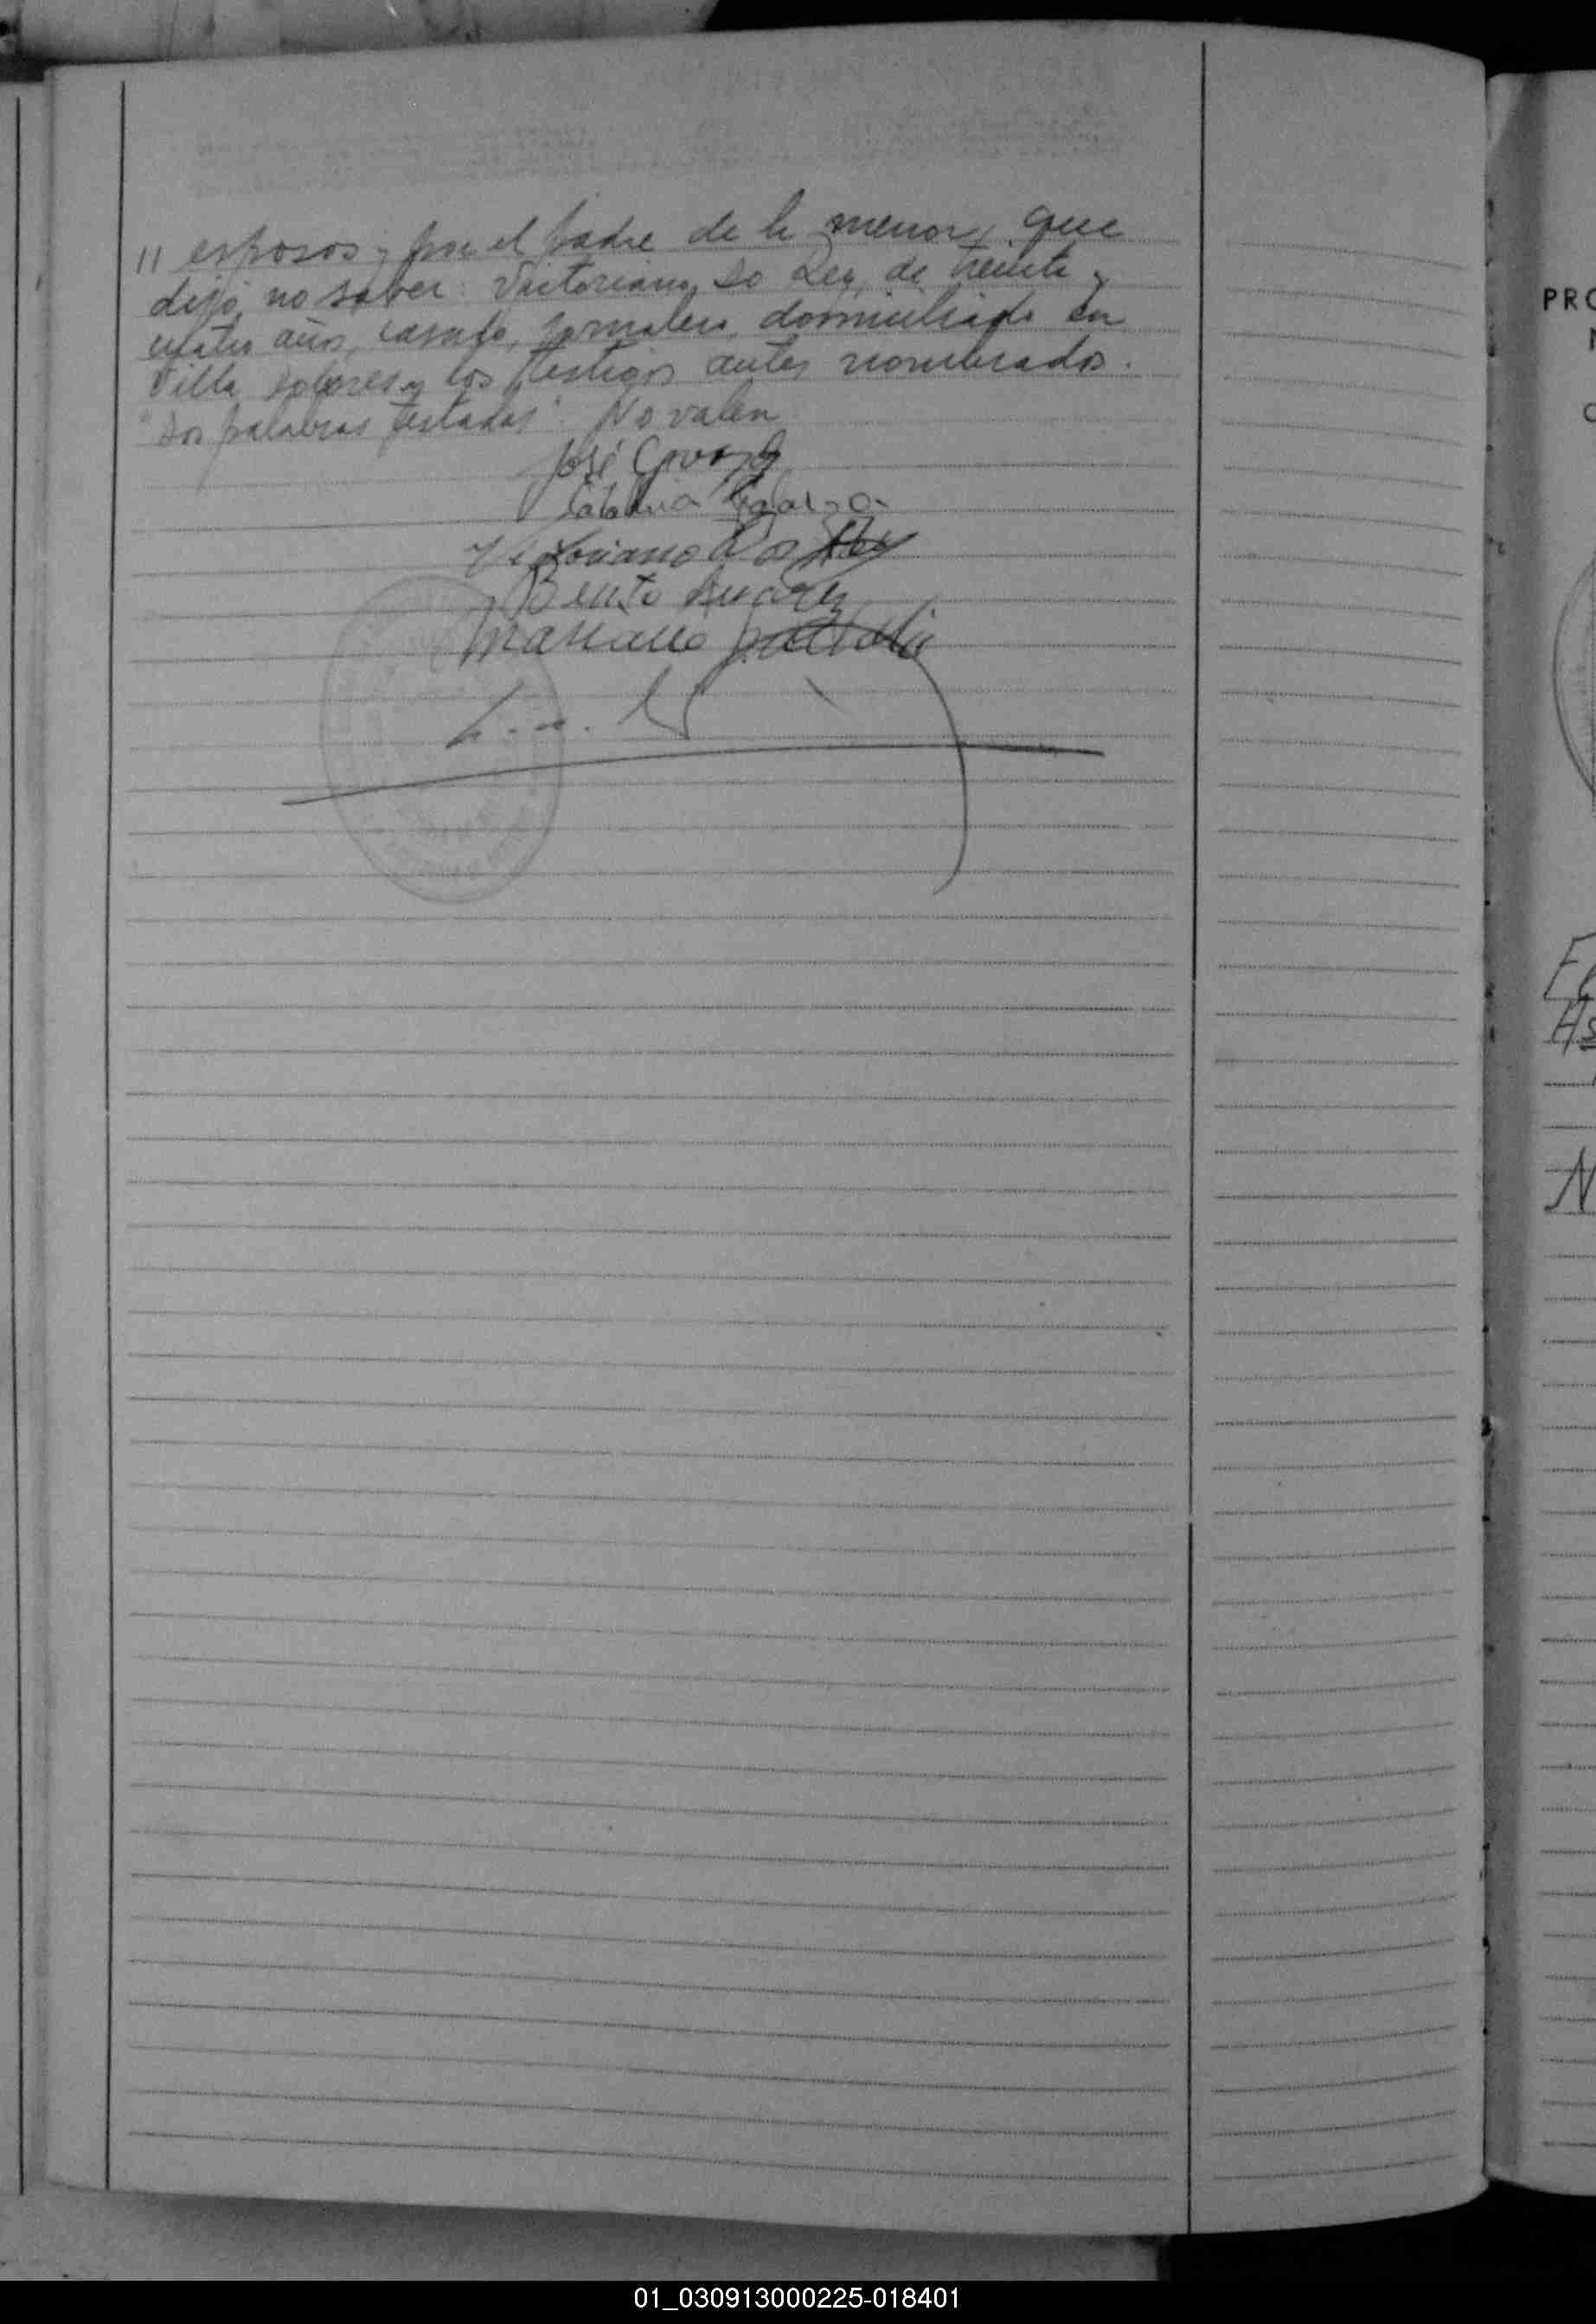 " esposos y por el padre de la menor, que
dijo no saber: Victoriano Do Rey, de treinta y
cuatro años, casado, jornalero, domiciliado en
Villa Dolores y los testigos antes nombrados.
"Dos palabras testadas". No valen
José
Catalina
Victoriano Do Rey
Benito Suarez
Mariano
PRO
N
01_030913000225-018401